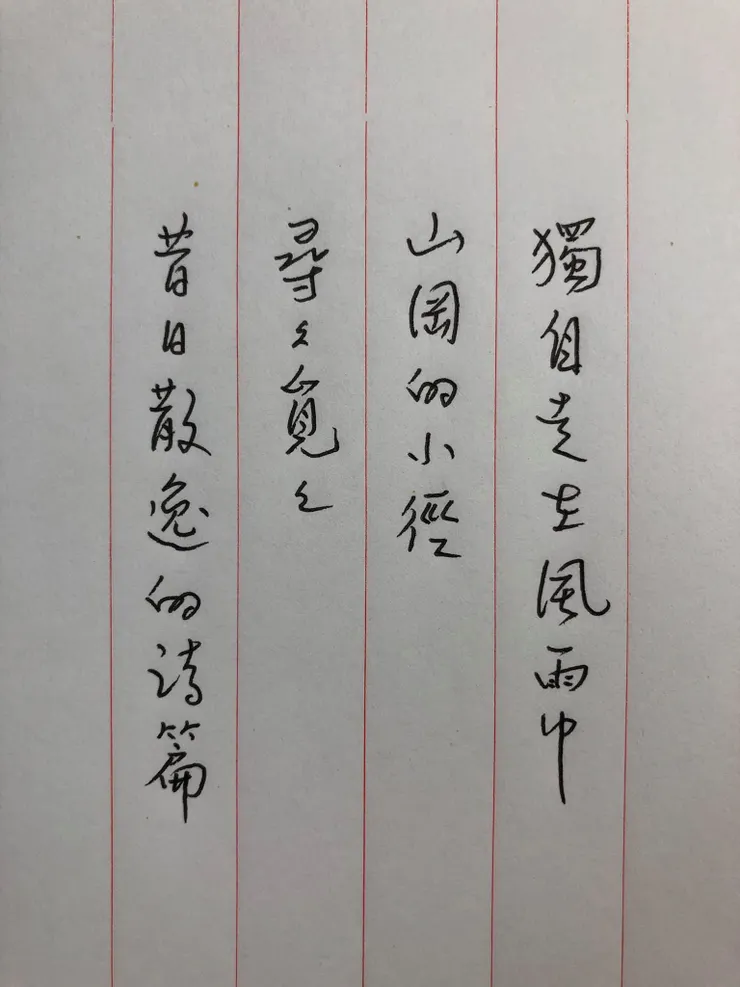 獨自走在風雨中
山岡的小徑
尋々覓々
昔日散逸的詩篇